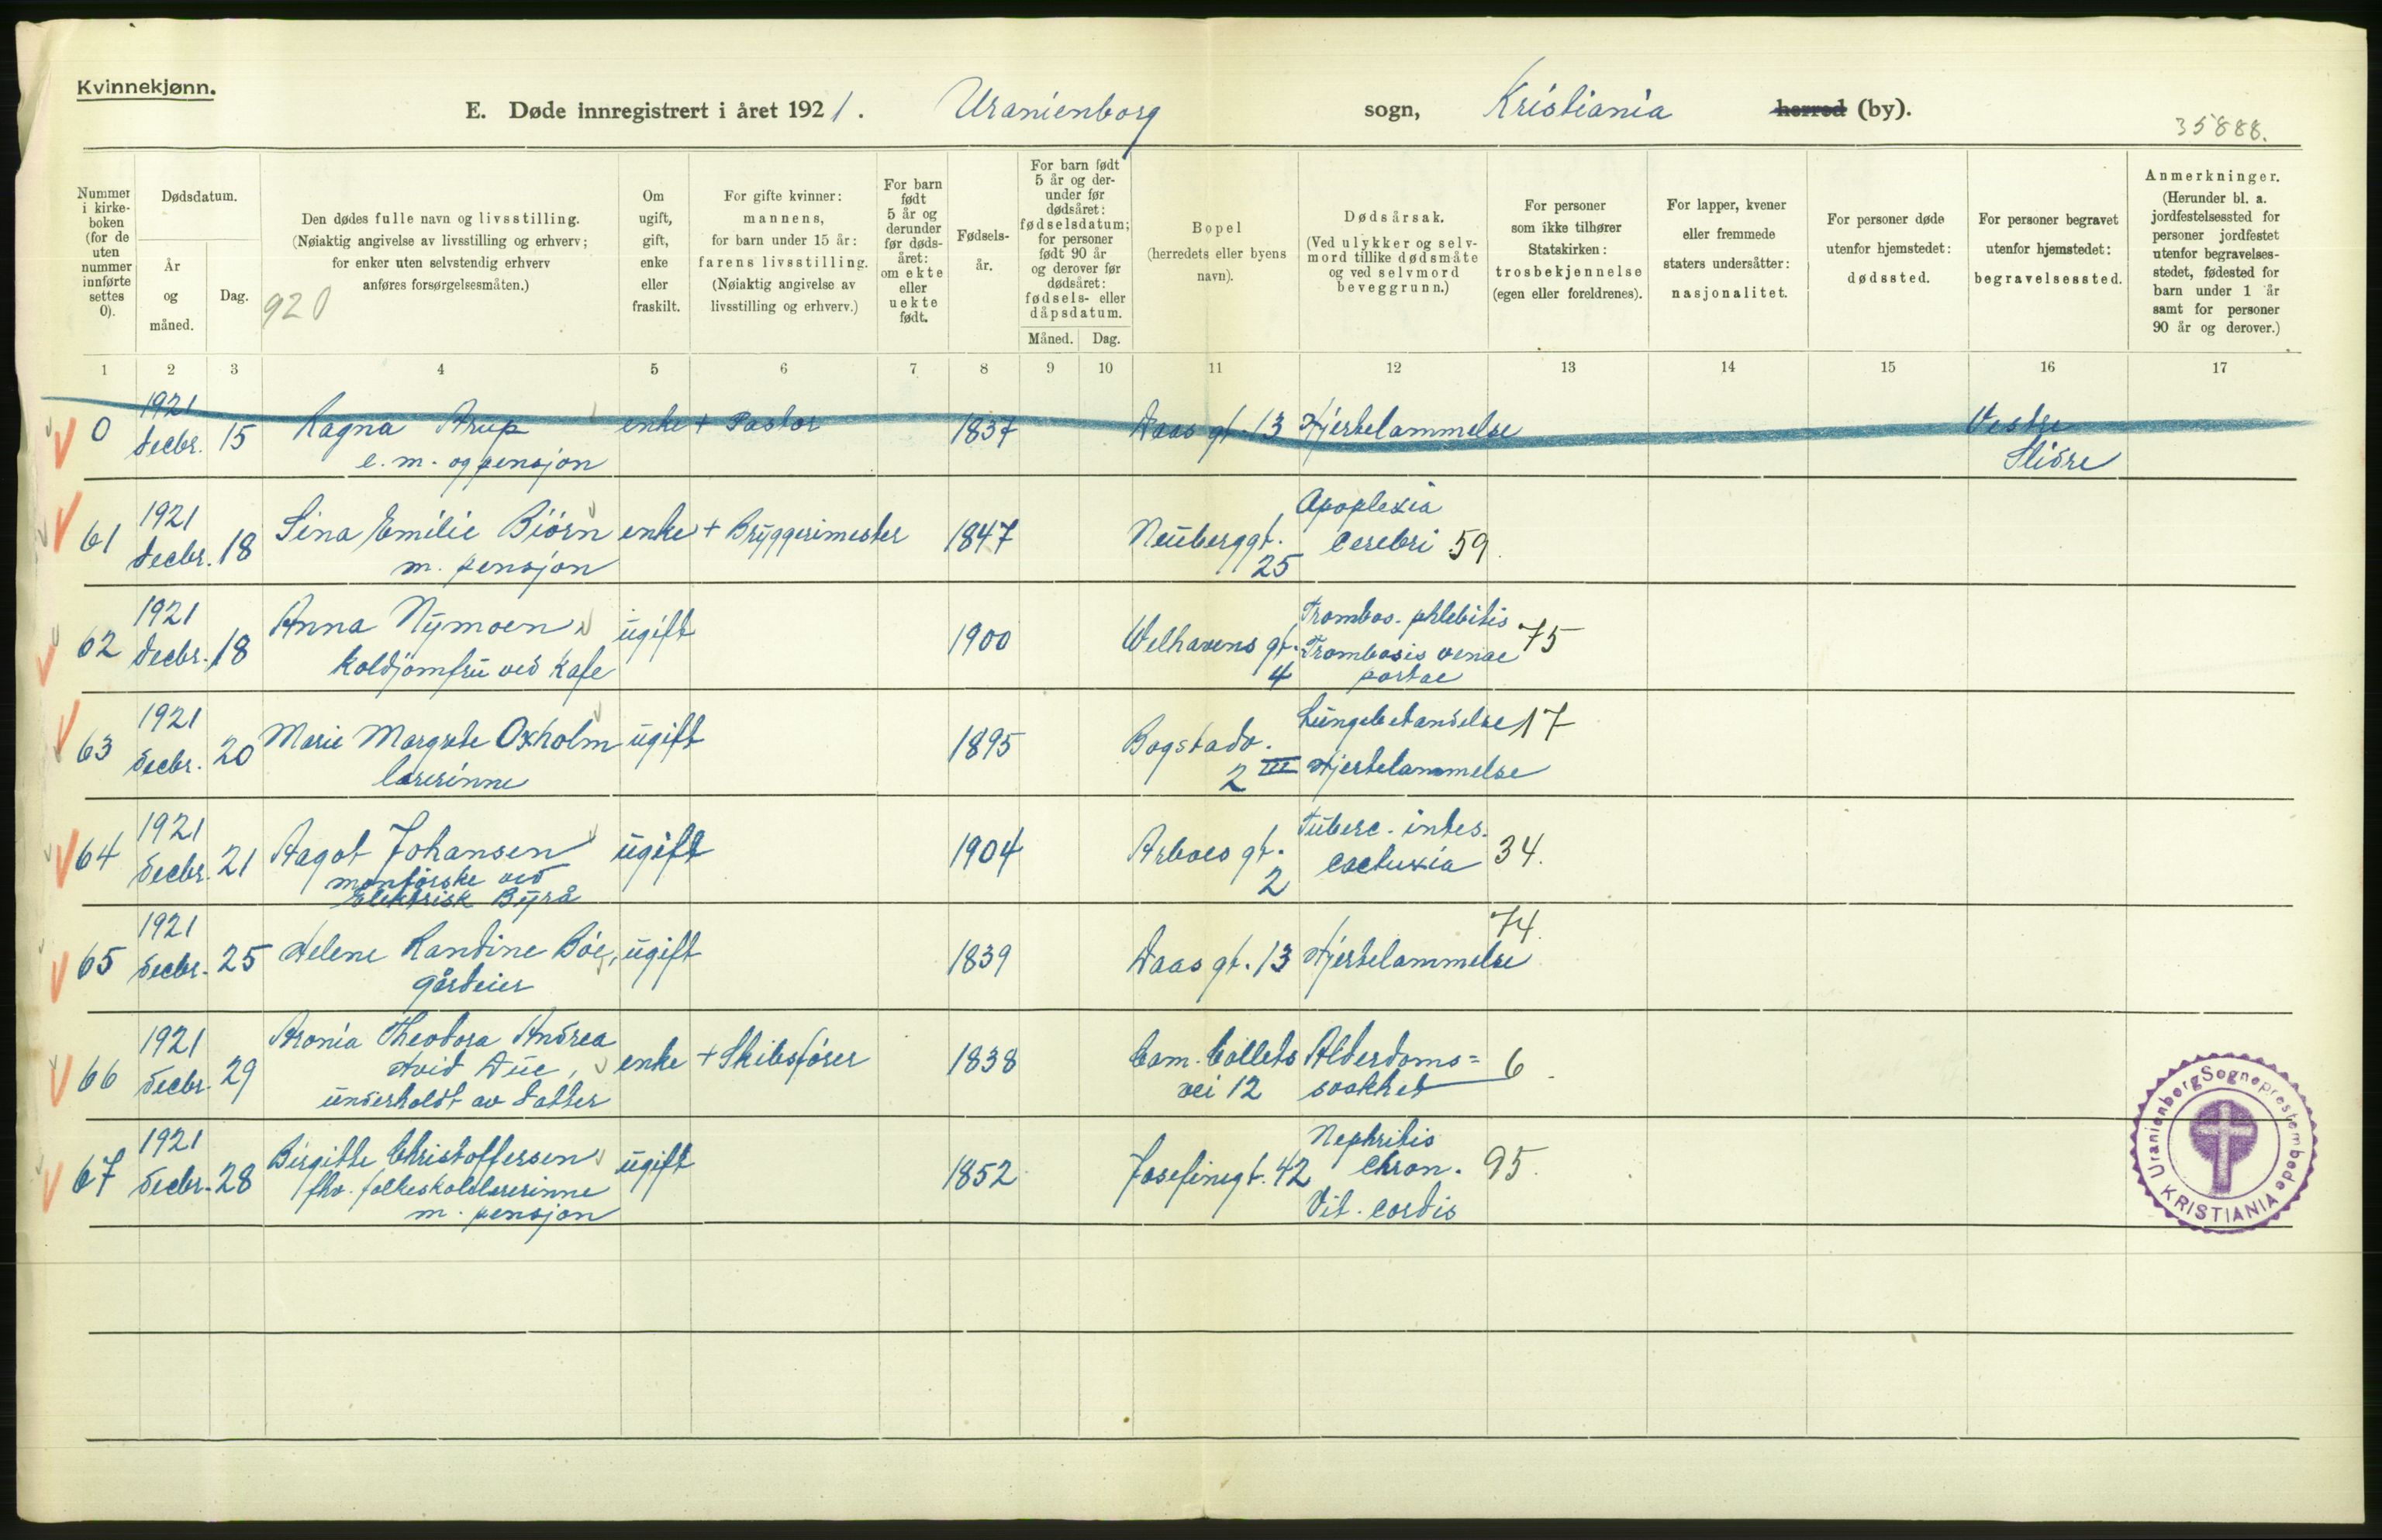 Kvinnekjønn.
E. Døde innregistrert i året 1921. Uranienborg sogn, Kristiania herred (by).
35888.
Nummer i kirke-boken (for de uten nummer innførte settes 0).
Dødsdatum.
År og måned.
Dag.
Den dødes fulle navn og livsstilling.
(Nøiaktig angivelse av livsstilling og erhverv;
for enker uten selvstendig erhverv
anføres forsørgelsesmåten.)
920
Om ugift, gift, enke eller fraskilt.
For gifte kvinner: mannens, for barn under 15 år: farens livsstilling. (Nøiaktig angivelse av livsstilling og erhverv.)
For barn født 5 år og derunder før døds-året: om ekte eller uekte født.
Fødsels-år.
For barn født 5 år og der-under før dødsåret: fødselsdatum; for personer født 90 år og derover før dødsåret: fødsels- eller dåpsdatum.
Måned. Dag.
Bopel (herredets eller byens navn).
Dødsårsak. (Ved ulykker og selv-mord tillike dødsmåte og ved selvmord beveggrunn.)
For personer som ikke tilhører Statskirken: trosbekjennelse (egen eller foreldrenes).
For lapper, kvener eller fremmede staters undersåtter: nasjonalitet.
For personer døde utenfor hjemstedet: dødssted.
For personer begravet utenfor hjemstedet: begravelsessted.
Anmerkninger. (Herunder bl. a. jordfestelsessted for personer jordfestet utenfor begravelses-stedet, fødested for barn under 1 år samt for personer 90 år og derover.)
1 2 3 4 5 6 7 8 9 10 11 12 13 14 15 16 17
0 1921 decbr. 15 Ragna Arup enke + Pastor 1837 Daas gt. 13 Hjertelammelse Vestre
e. m. og pensjon Slidre
61 1921 decbr. 18 Sina Emilie Biørn enke + Bryggerimester 1847 Neuberggt. 25 Apoplexia cerebri 59.
m. pensjon
62 1921 decbr. 18 Anna Nymoen ugift 1900 Welhavens gt. 4 Trombos. phlebitis Trombosis venae portae 75
koldjomfru ved kafe
63 1921 decbr. 20 Marie Margrete Oxholm ugift 1895 Bogstadv. 2 III Lungebetændelse 17 Hjertelammelse
lærerinne
64 1921 decbr. 21 Aagot Johansen ugift 1904 Arboes gt. 2 Tuberc. intes. cachexia 34.
montørske ved
Elektrisk Byrå
65 1921 decbr. 25 Helene Randine Bøe, ugift 1839 Daas gt. 13 Hjertelammelse 74.
gårdeier
66 1921 decbr. 29 Aronia Theodora Andrea enke + Skibsfører 1838 Cam. Collets vei 12 Alderdoms= svakhet 6.
Hvid Due,
underholdt av datter
67 1921 decbr. 28 Birgitte Christoffersen ugift 1852 Josefinegt. 42 Nephritis chron. 95. Vit. cordis
fhv. folkeskolelærerinne
m. pensjon
Uranienborg Sogneprestembede
KRISTIANIA